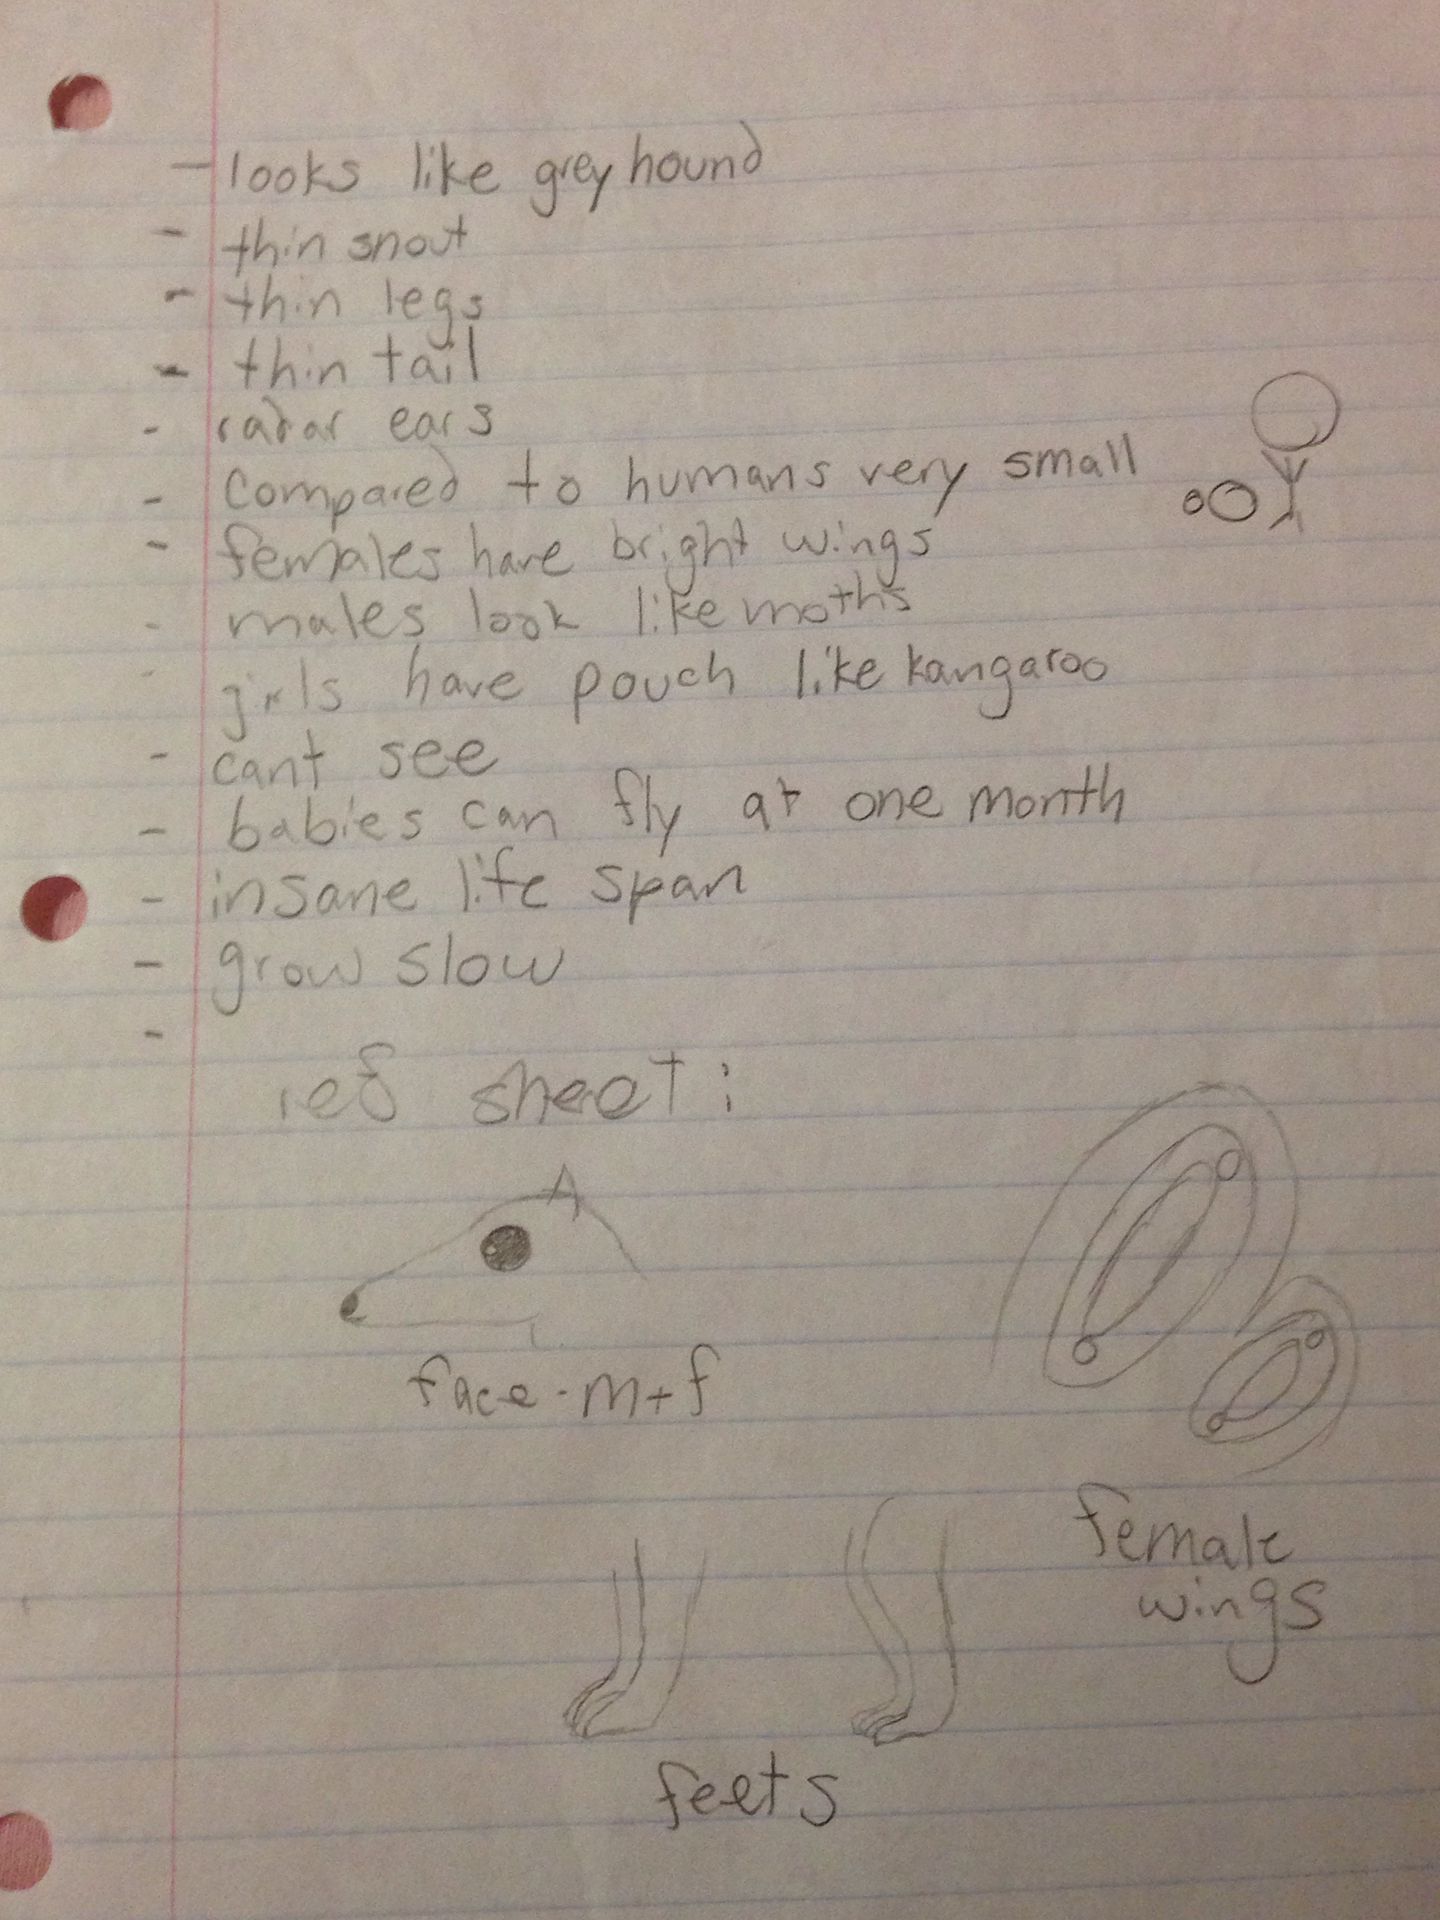 - looks like greyhound
- thin snout
- thin legs
- thin tail
- radar ears
- compared to humans very small
- females have bright wings
- males look like moths
- girls have pouch like kangaroo
- cant see
- babies can fly at one month
- insane life span
- grow slow
-
ref sheet:
face - m+f
female
wings
feets